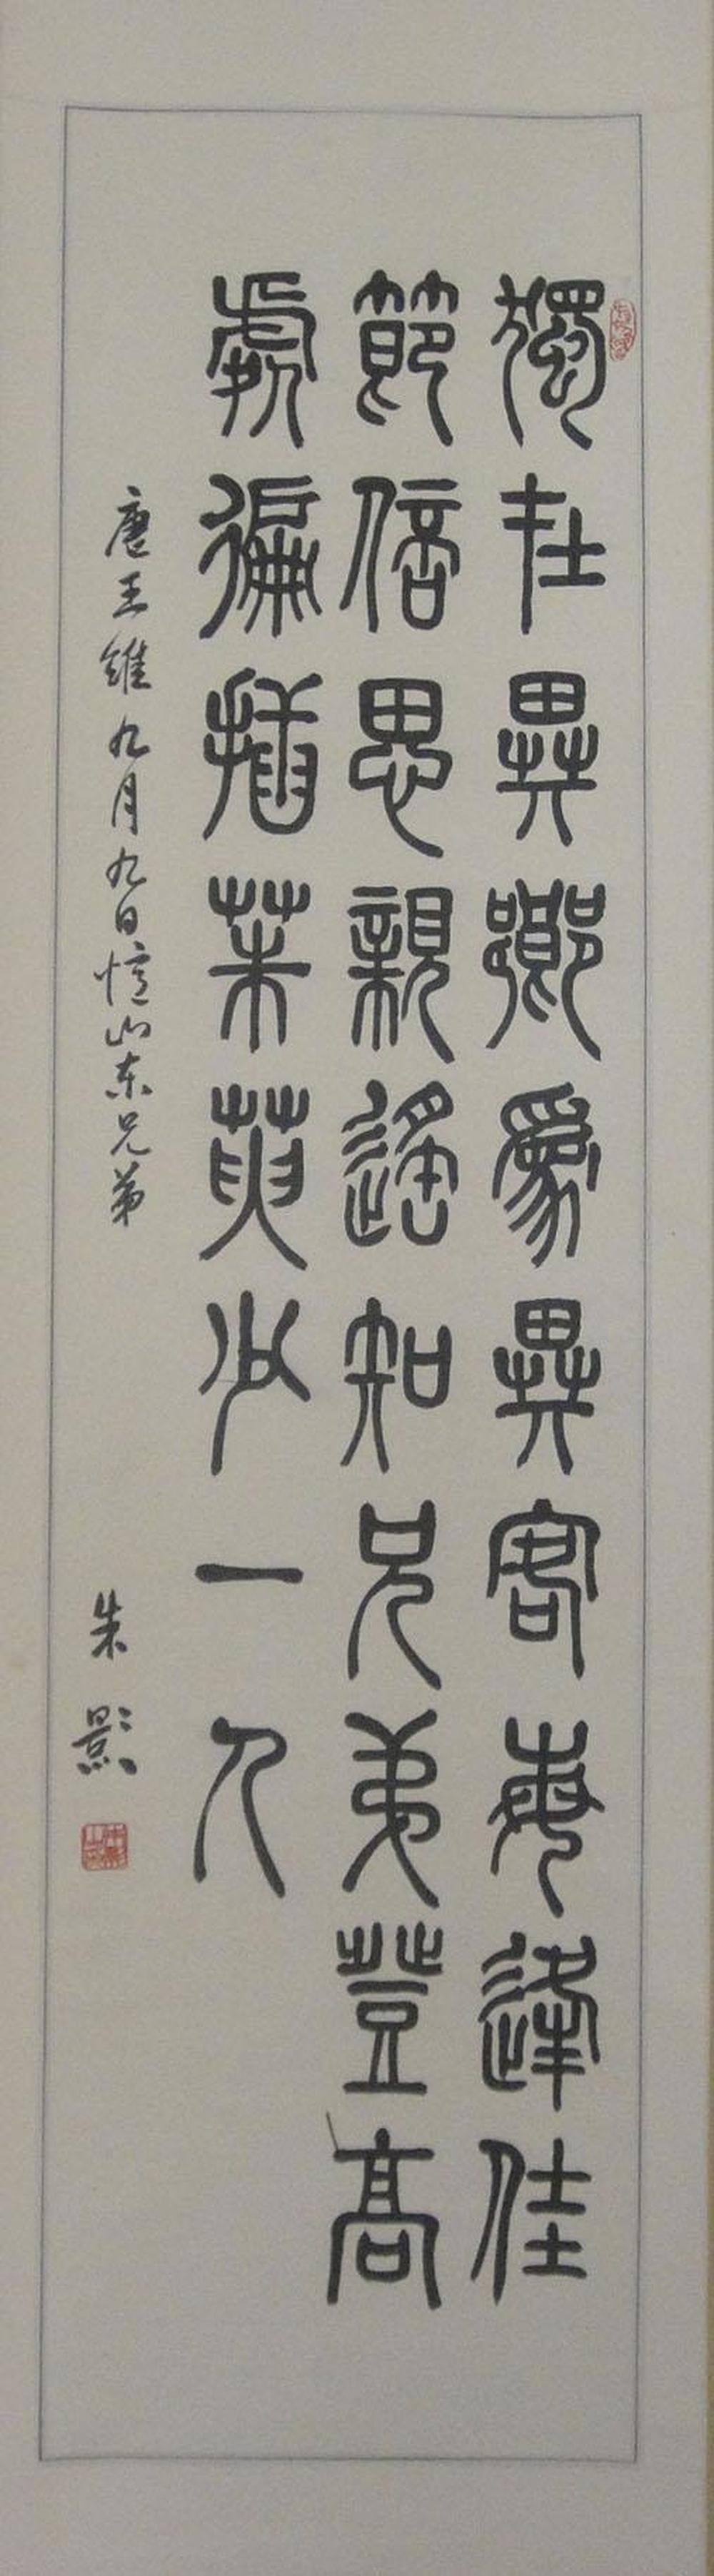 獨在異鄉爲異客每逢佳
節倍思親遙知兄弟登高
處徧插茱萸少一人
唐王維九月九日憶山东兄弟
朱影